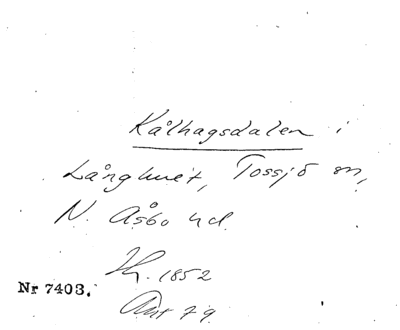 Kålhagsdalen i
Långhult, Tossjö sn,
N. Åsbo hd.
1852
Nr 7403.
79